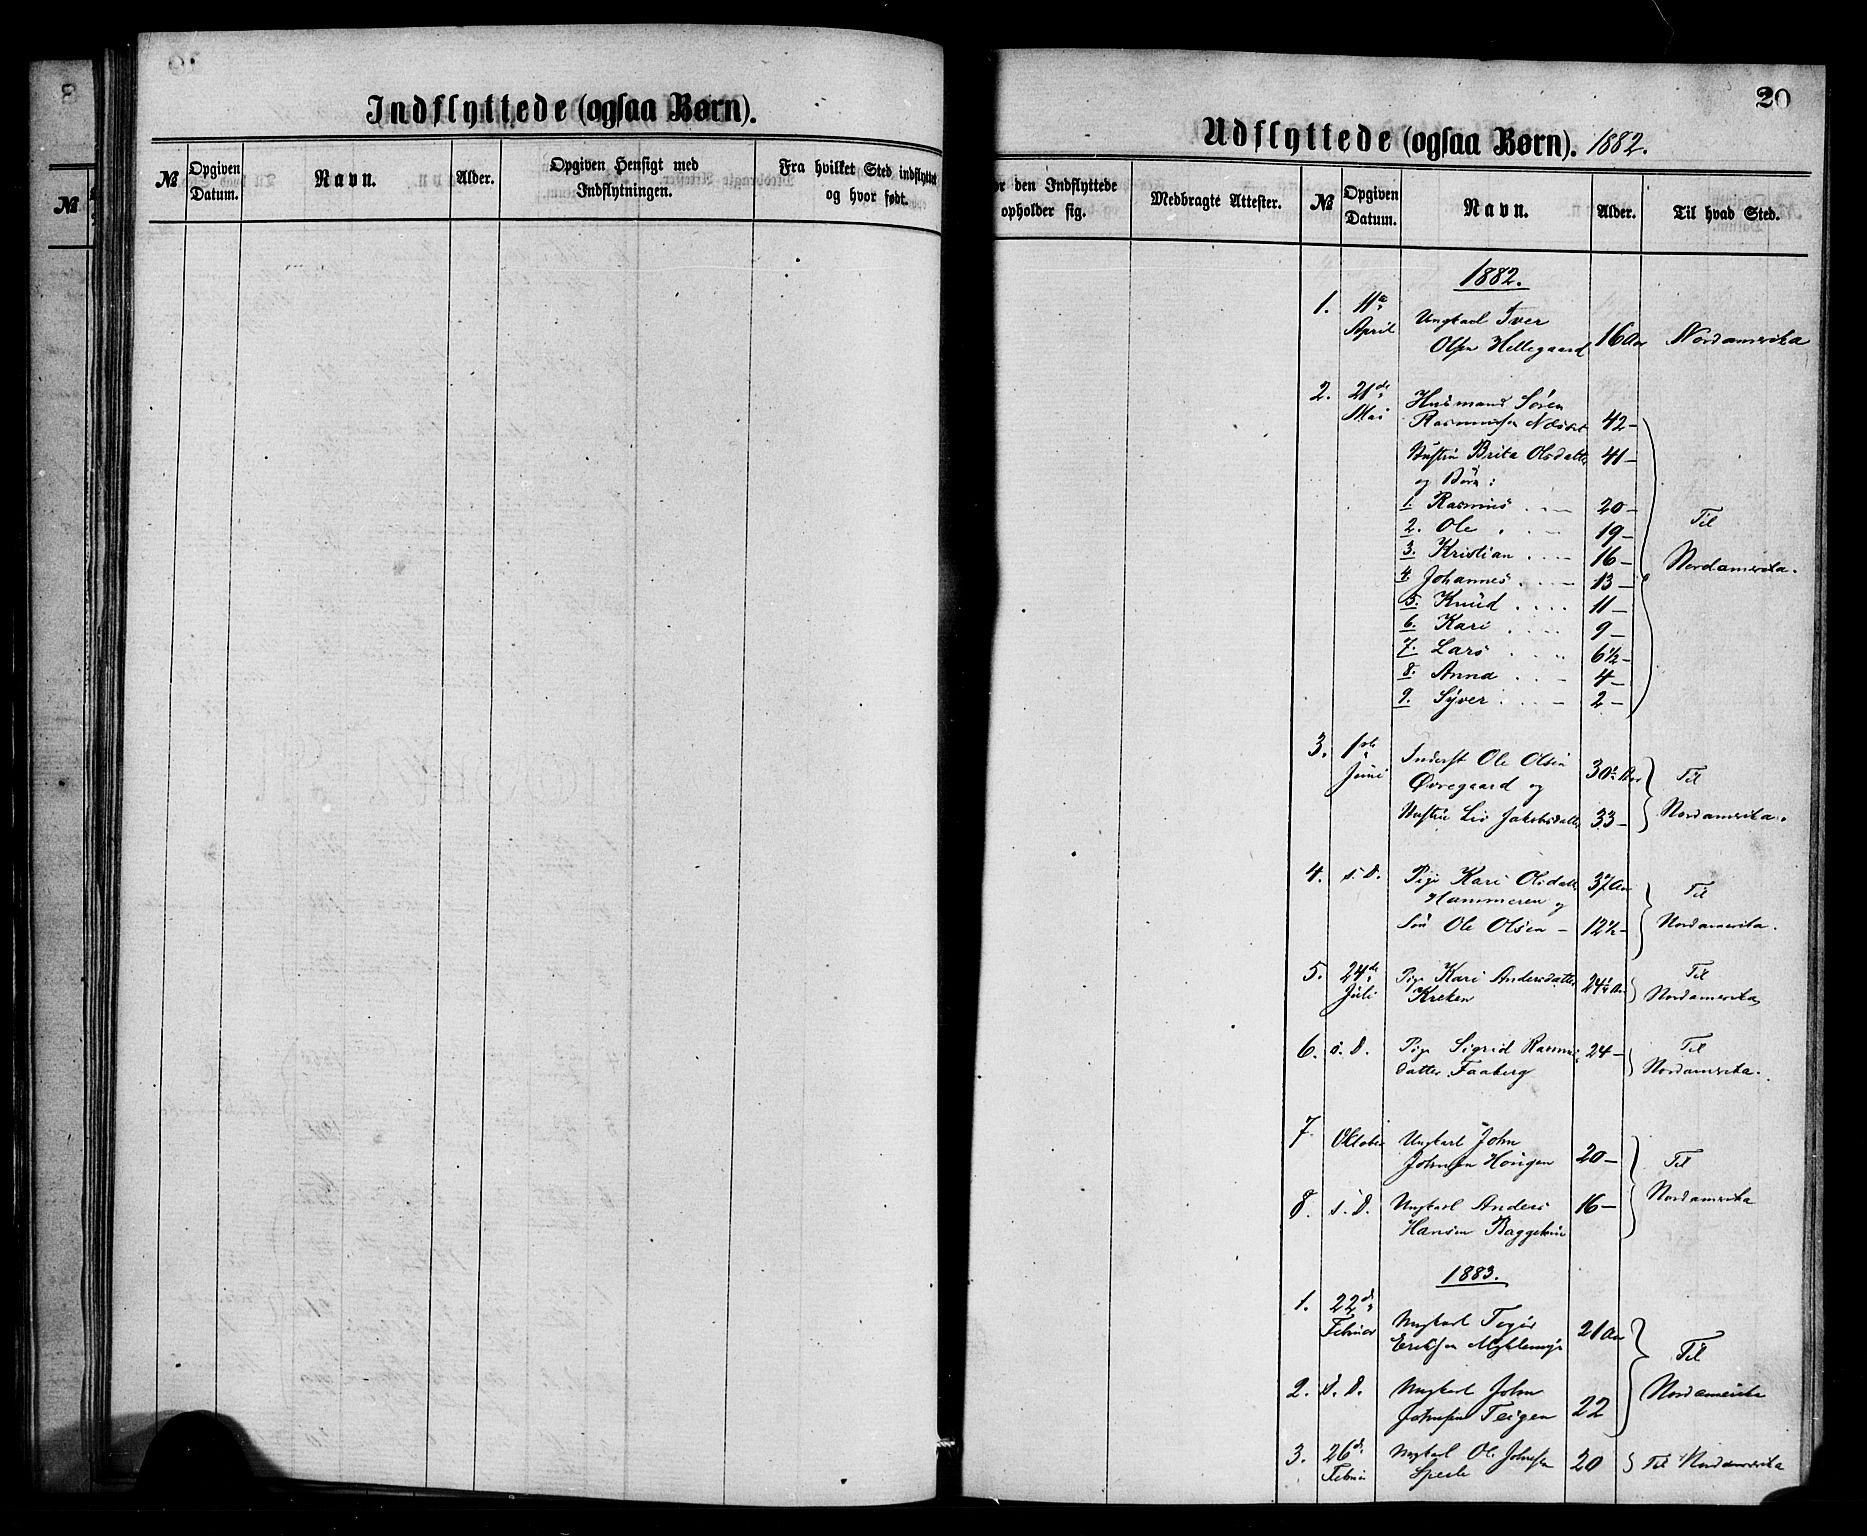 Indflyttede (ogsaa Børn).
№ Opgiven Datum. Navn. Alder. Opgiven Hensigt med Indflytningen. Fra hvilket Sted indflyttet og hvor født.
8
№
20
Udflyttede (ogsaa Børn). 1882.
or den Indflyttede opholder sig. Medbragte Attester. № Opgiven Datum. Navn. Alder. Til hvad Sted.
1882.
1. 11te Ungkarl Iver
April Olsen Hellegaard 16 Aar Nordamerika
2. 21de Husmand Søren
Mai Rasmussen Næsset 42–
Hustru Brita Olsdatter 41–
og Børn:
1. Rasmus 20–
2. Ole 19– Til
3. Kristian 16– Nordamerika.
4. Johannes 13–
5. Knud 11–
6. Kari 9–
7. Lars 6½–
8. Anna 4–
9. Syver 2–
3. 1ste Inderst Ole Olsen 30 Aar Til
Juni Øvregaard og
Hustru Liv Jakobsdatter 33– Nordamerika.
4. s. D. Pige Kari Olsdatter 37 Aar Til
Hammeren og
Søn Ole Olsen – 12½– Nordamerika.
5. 24de Pige Kari Andersdatter 24 Aar Til
Juli Kreken Nordamerika
6. s. D. Pige Sigrid Rasmus- 24– Til
datter Faaberg Nordamerika.
7. Oktober Ungkarl John
Johnsen Hougen 20– Til
Nordamerika
8. s. D. Ungkarl Anders 16–
Hansen
1883.
1. 22de Ungkarl
Februar Eriksen Myklemyr 21 Aar Til
2. s. D. Ungkarl John Nordamerika
Johnsen Teigen 22
3. 26de Ungkarl Ole Johnsen 20 Til Nordamerika
Februar Sperle